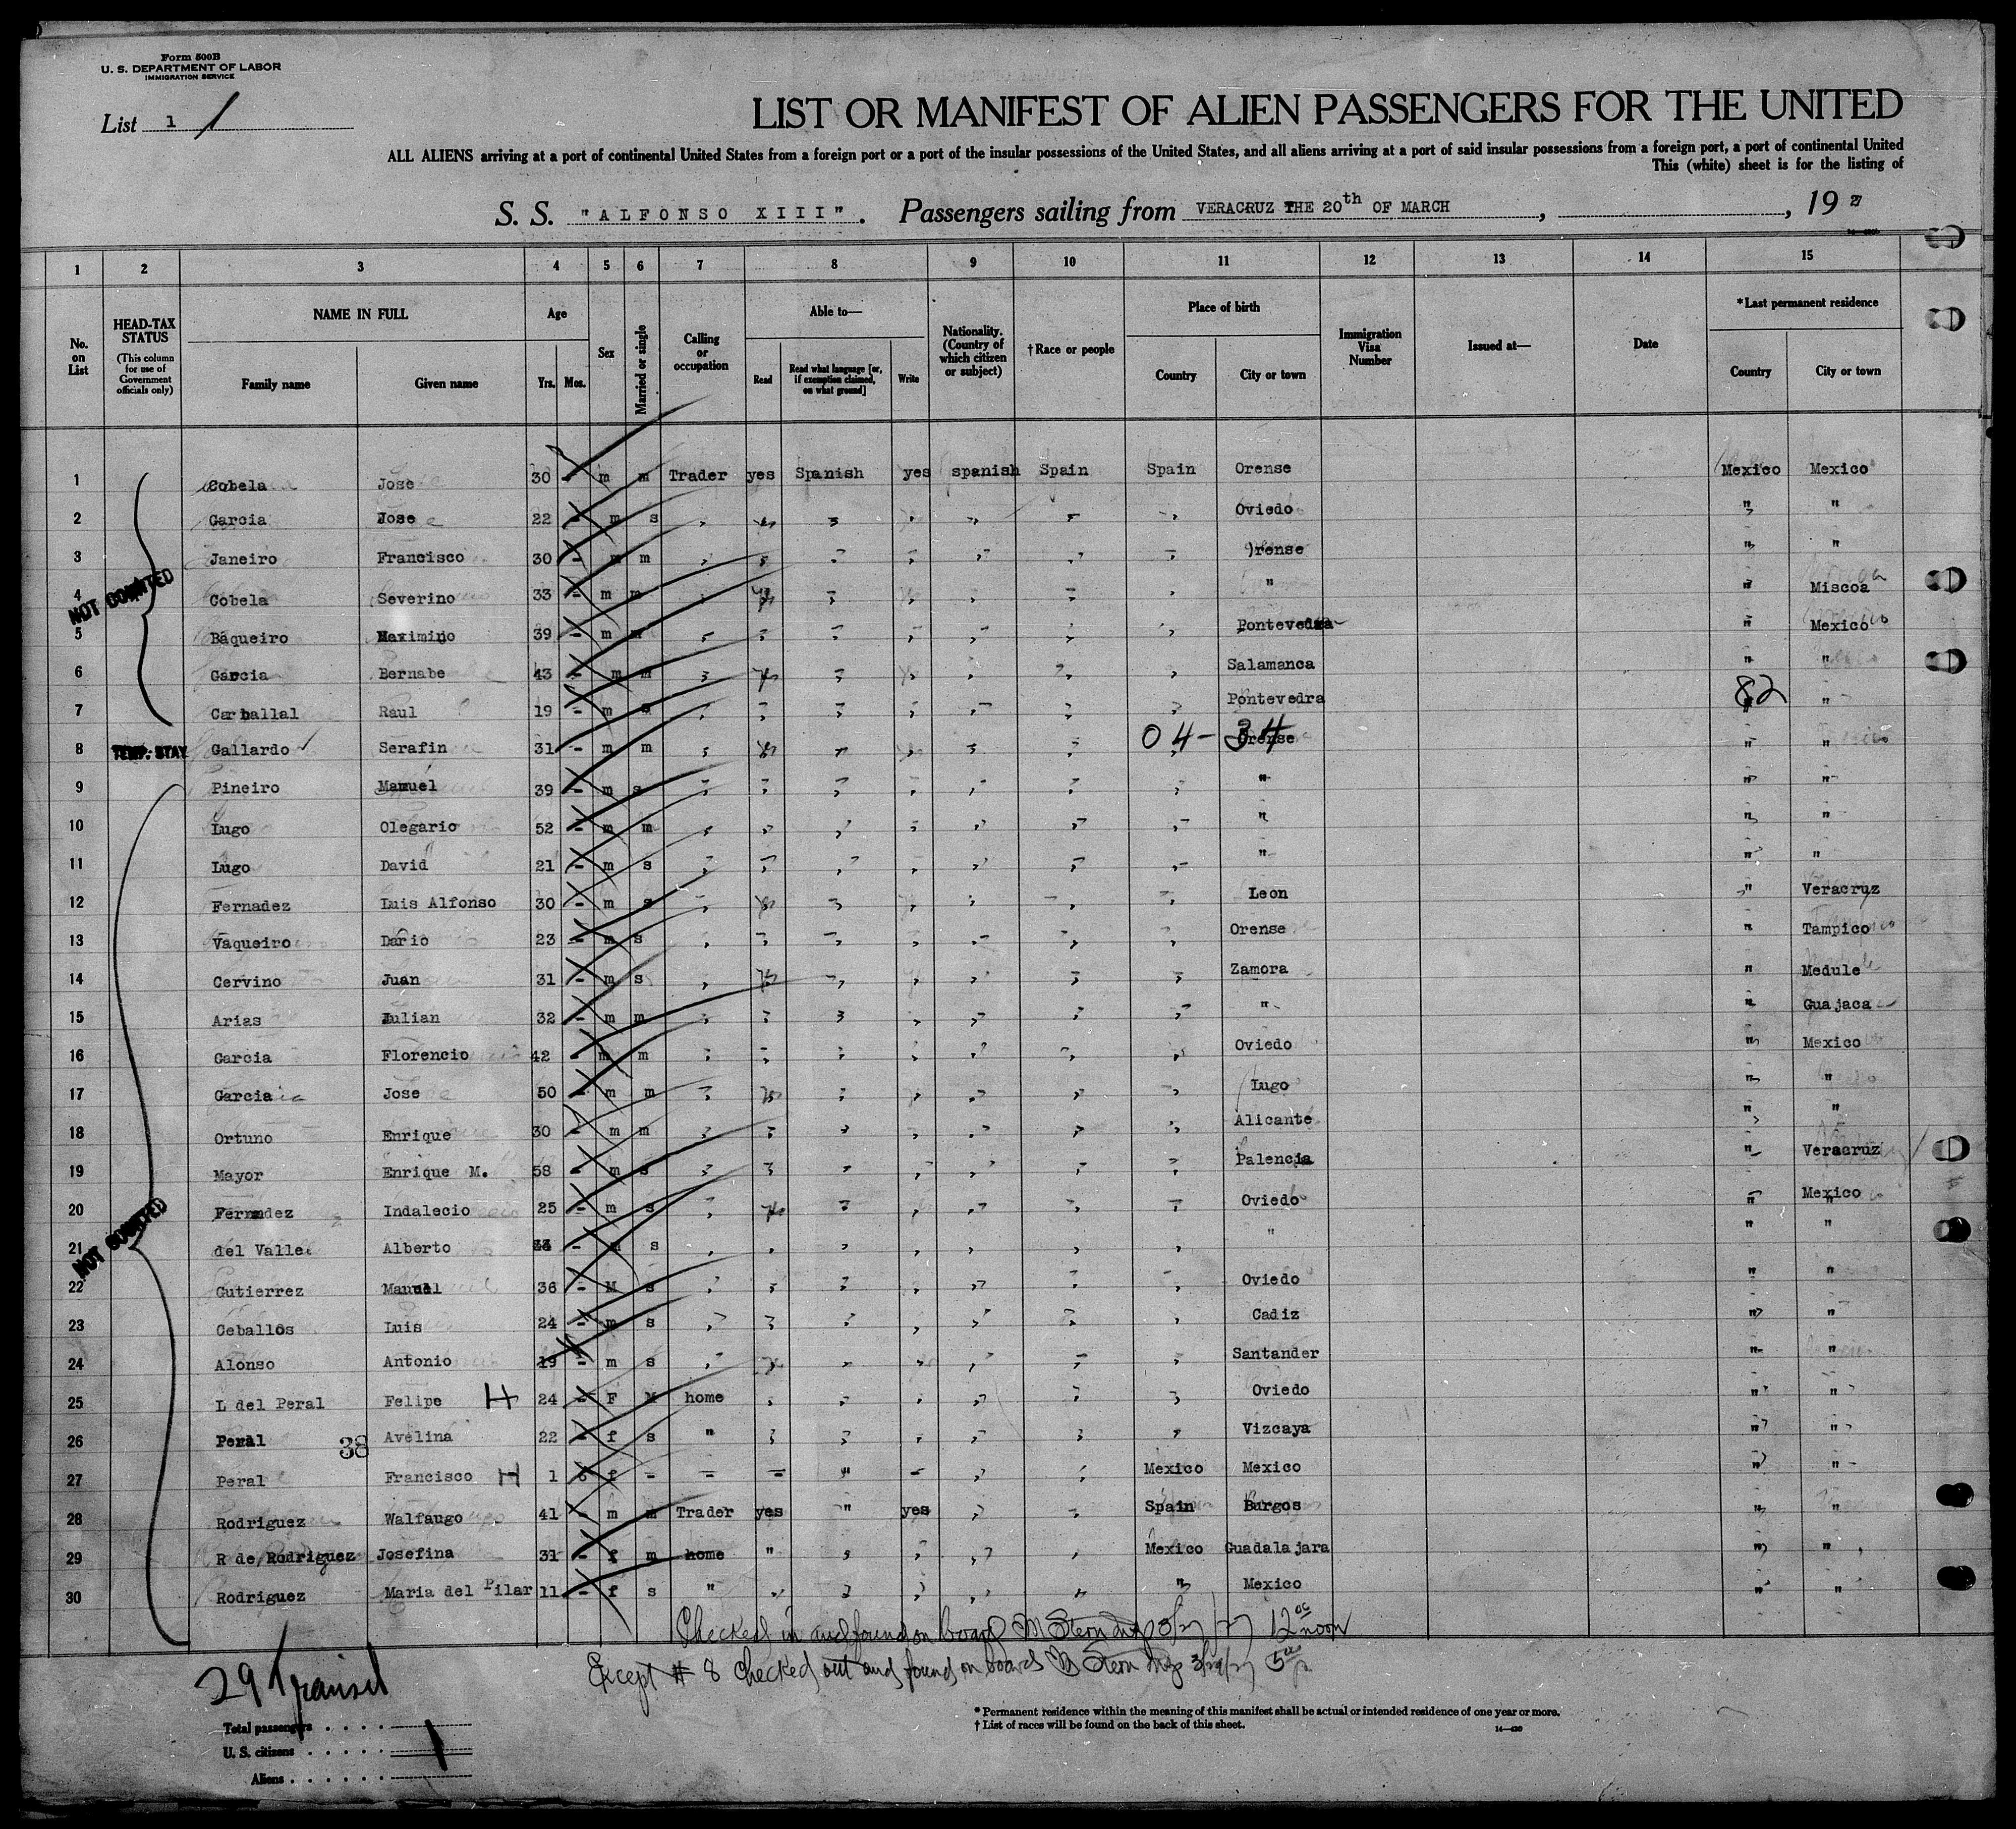 Form 500B
U. S. DEPARTMENT OF LABOR
IMMIGRATION SERVICE
List 1 /
LIST OR MANIFEST OF ALIEN PASSENGERS FOR THE UNITED
ALL ALIENS arriving at a port of continental United States from a foreign port or a port of the insular possessions of the United States, and all aliens arriving at a port of said insular possessions from a foreign port, a port of continental United
This (white) sheet is for the listing of
S. S. "ALFONSO XIII". Passengers sailing from VERACRUZ THE 20th OF MARCH, , 19 27
1 2 3 4 5 6 7 8 9 10 11 12 13 14 15
No. on List
HEAD-TAX STATUS (This column for use of Government officials only)
NAME IN FULL
Family name Given name
Age
Yrs. Mos.
Sex
Married or single
Calling or occupation
Able to—
Read Read what language [or, if exemption claimed, on what ground] Write
Nationality. (Country of which citizen or subject)
†Race or people
Place of birth
Country City or town
Immigration Visa Number
Issued at—
Date
*Last permanent residence
Country City or town
1 Cobela Jose 30 - m m Trader yes Spanish yes spanish Spain Spain Orense Mexico Mexico
2 Garcia Jose 22 - m s Oviedo " "
3 Janeiro Francisco 30 - m m Orense " "
4 Cobela Severino 33 - m m " " Miscoa
NOT COUNTED
5 Baqueiro Maximino 39 - m m Pontevedra " Mexico
6 Garcia Bernabe 43 - m m Salamanca " "
7 Carballal Raul 19 - m s Pontevedra 82 " "
8 TEMP. STAY Gallardo Serafin 31 - m m 04-34 Orense " "
9 Pineiro Manuel 39 - m s " " "
10 Lugo Olegario 52 - m m " " "
11 Lugo David 21 - m s " " "
12 Fernadez Luis Alfonso 30 - m s Leon " Veracruz
13 Vaqueiro Dario 23 - m s Orense " Tampico
14 Cervino Juan 31 - m s Zamora " Medule
15 Arias Iulian 32 - m m " " Guajaca
16 Garcia Florencio 42 - m m Oviedo " Mexico
17 Garcia Jose 50 - m m Lugo " "
18 Ortuno Enrique 30 - m m Alicante " "
19 Mayor Enrique M. 58 - m s Palencia " Veracruz
20 Fernndez Indalecio 25 - m s Oviedo " Mexico
NOT COUNTED
21 del Valle Alberto - m s " " "
22 Gutierrez Manuel 36 - M s Oviedo " "
23 Ceballos Luis 24 - m s Cadiz " "
24 Alonso Antonio 19 - m s Santander " "
25 L del Peral Felipe H 24 - F M home Oviedo " "
26 Peral 38 Avelina 22 - f s " Vizcaya " "
27 Peral Francisco H 1 6 f - - - " - Mexico Mexico " "
28 Rodriguez Walfaugo 41 - m m Trader yes " yes Spain Burgos " "
29 R de Rodriguez Josefina 31 - f m home " Mexico Guadalajara " "
30 Rodriguez Maria del Pilar 11 - f s " " Mexico " "
Checked in and found on board M Stern 3/27/27 12 noon
Except # 8 Checked out and found on board M Stern
29 Transit
Total passengers
U. S. citizens
Aliens
1
* Permanent residence within the meaning of this manifest shall be actual or intended residence of one year or more.
† List of races will be found on the back of this sheet.
14—430